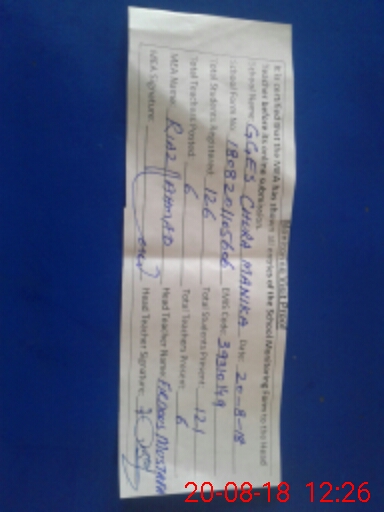 Maintenance Visit Proof
It is certified that the MEA has shown all entries of the School Monitoring Form to the Head
Teacher before its online submission.
School Name: GGES CHURA MANIKA Date: 20-8-18
School Form No: EMIS Code: 39310149
Total Students Registered: 126 Total Students Present: 121
Total Teachers Posted: 6 Total Teachers Present: 6
MEA Name: RIAZ AHMAD Head Teacher Name: FIRDOUS MUSTAFA
MEA Signature: Head Teacher Signature:
20-08-18 12:26